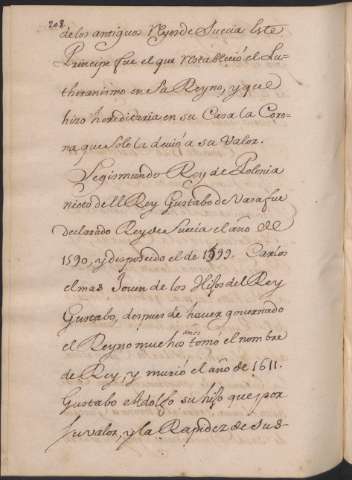 208.
de los antiguos Reyes de Suecia Este
Principe fue el que restablecio el Lu-
theranismo en su Reyno, y que
hizo hereditaria en su Casa la Coro-
na que solo la devió a su Valor.
Segismundo Rey de Polonia
nieto del Rey Gustabo de Vasa fue
declarado Rey de Suecia el año de
1590, y desposeido el de 1599. Carlos
el mas Joven de los Hijos del Rey
Gustabo, despues de haver governado
el Reyno muchos años tomó el nombre
de Rey, y murió el año de 1611.
Gustabo Adolfo su hijo que por
su valor, y la Rapidez de sus-